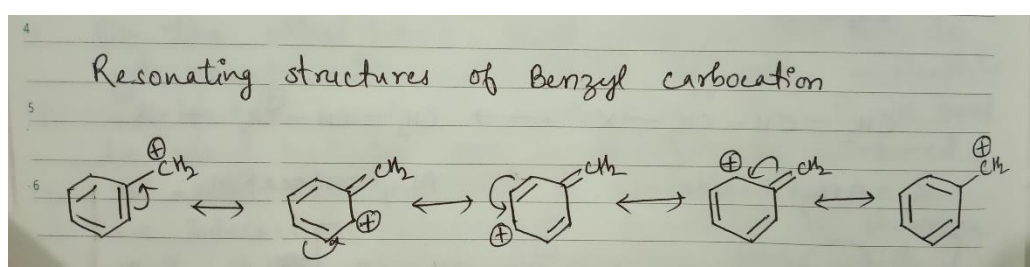 4
Resonating structures of Benzyl carbocation
5
6
⊕ ⊕ ⊕
CH2 CH2 CH2 CH2 CH2
⊕ ⊕